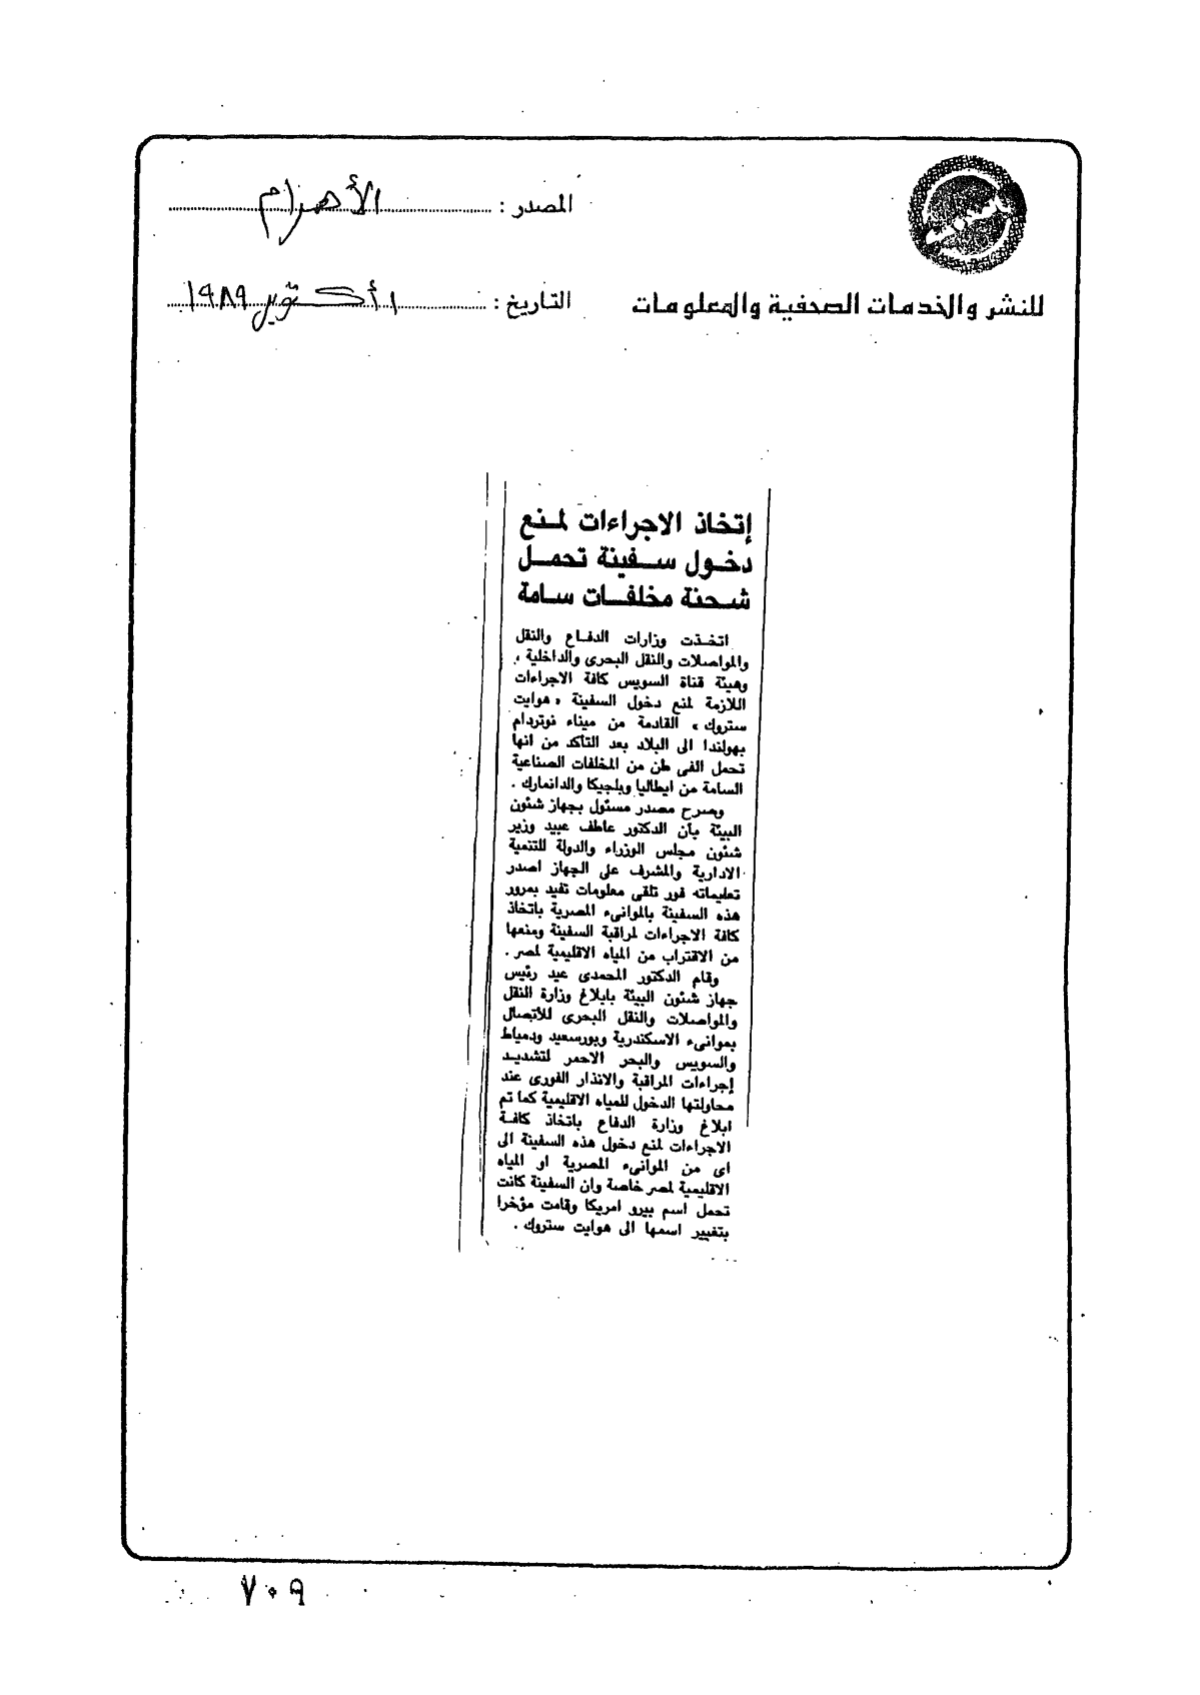 المصدر : الأهرام
للنشر والخدمات الصحفية والمعلومات
التاريخ : ١ أكتوبر ١٩٨٩
إتخاذ الاجراءات لمنع
دخول سفينة تحمل
شحنة مخلفات سامة
اتخذت وزارات الدفاع والنقل
والمواصلات والنقل البحرى والداخلية ،
وهيئة قناة السويس كافة الاجراءات
اللازمة لمنع دخول السفينة « هوايت
ستروك » القادمة من ميناء نوتردام
بهولندا الى البلاد بعد التأكد من انها
تحمل الفى طن من المخلفات الصناعية
السامة من ايطاليا وبلجيكا والدانمارك .
وصرح مصدر مسئول بجهاز شئون
البيئة بأن الدكتور عاطف عبيد وزير
شئون مجلس الوزراء والدولة للتنمية
الادارية والمشرف على الجهاز اصدر
تعليماته فور تلقى معلومات تفيد بمرور
هذه السفينة بالموانىء المصرية باتخاذ
كافة الاجراءات لمراقبة السفينة ومنعها
من الاقتراب من المياه الاقليمية لمصر .
وقام الدكتور المحمدى عيد رئيس
جهاز شئون البيئة بابلاغ وزارة النقل
والمواصلات والنقل البحرى للأتصال
بموانىء الاسكندرية وبورسعيد ودمياط
والسويس والبحر الاحمر لتشديد
إجراءات المراقبة والانذار الفورى عند
محاولتها الدخول للمياه الاقليمية كما تم
ابلاغ وزارة الدفاع باتخاذ كافة
الاجراءات لمنع دخول هذه السفينة الى
اى من الموانىء المصرية او المياه
الاقليمية لمصر خاصة وان السفينة كانت
تحمل اسم بيرو امريكا وقامت مؤخرا
بتغيير اسمها الى هوايت ستروك .
٧٠٩